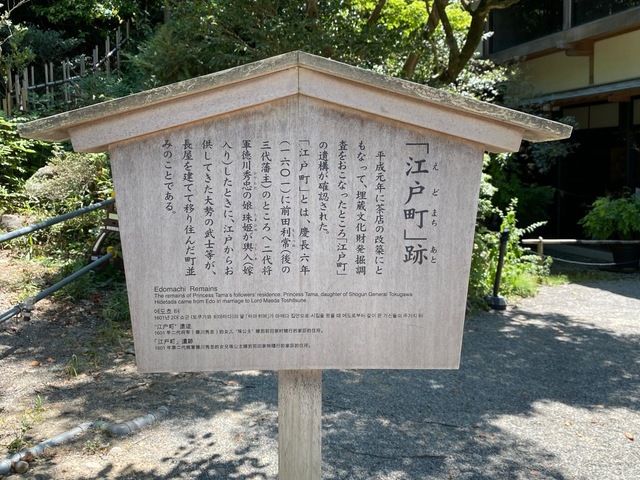 「江戸町」跡
えどまちあと
平成元年に茶店の改築にと
もなって、埋蔵文化財発掘調
査をおこなったところ「江戸町」
の遺構が確認された。
「江戸町」とは、慶長六年
(一六〇一)に前田利常(後の
三代藩主)のところへ二代将
軍徳川秀忠の娘珠姫が輿入(嫁
入り)したときに、江戸からお
供してきた大勢の武士等が、
長屋を建てて移り住んだ町並
みのことである。
Edomachi Remains
The remains of Princess Tama's followers' residence. Princess Tama, daughter of Shogun General Tokugawa
Hidetada came from Edo in marriage to Lord Maeda Toshitsune.
"江户町" 遗迹
「江戶町」遺跡